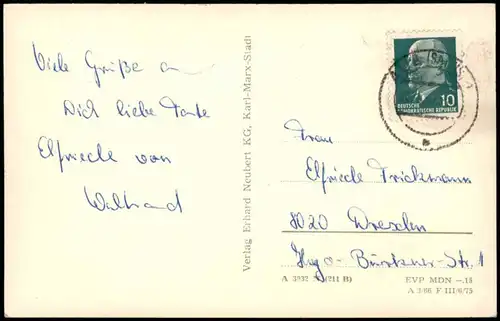 Viele Grüße an
Dich liebe Tante
Elfriede von
Waltraud
Verlag Erhard Neubert KG, Karl-Marx-Stadt
DEUTSCHE
DEMOKRATISCHE REPUBLIK
10
Frau
Elfriede
8020 Dresden
Hugo-Bürkner-Str. 1
A 3892 (211 B)
EVP MDN –.15
A 3/66 F III/6/75